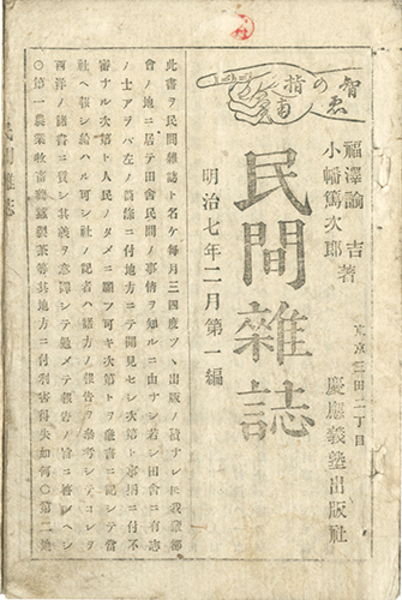 智ゑの指南
福澤諭吉
小幡篤次郎
著
東京三田二丁目
慶應義塾出版社
民間雜誌
明治七年二月第一編
此書ヲ民間雜誌ト名ケ毎月三四度ツヽ出版ノ積ナレ𪜈我輩都
會ノ地ニ居テ田舎民間ノ事情ヲ知ルニ由ナシ若シ田舎ニ有志
ノ士アラバ左ノ箇條ニ付地方ニテ聞見セシ次第ト事柄ニ付不
審ナル次第ト人民ノタメニ願フ可キ次第トヲ書ニ記シテ當
社ヘ報シ給ハル可シ社ノ記者ハ諸方ノ報告ヲ參考シテコレヲ
西洋ノ諸書ニ質シ其義ヲ意譯シテ勉メテ報告ノ旨ニ答ヘシ
○第一農業牧畜養蠶製茶等其地方ニ付利害得失如何○第二地
民間雜誌